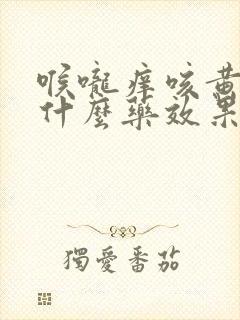 喉嚨痒咳黄
什麼藥效果
獨愛番茄